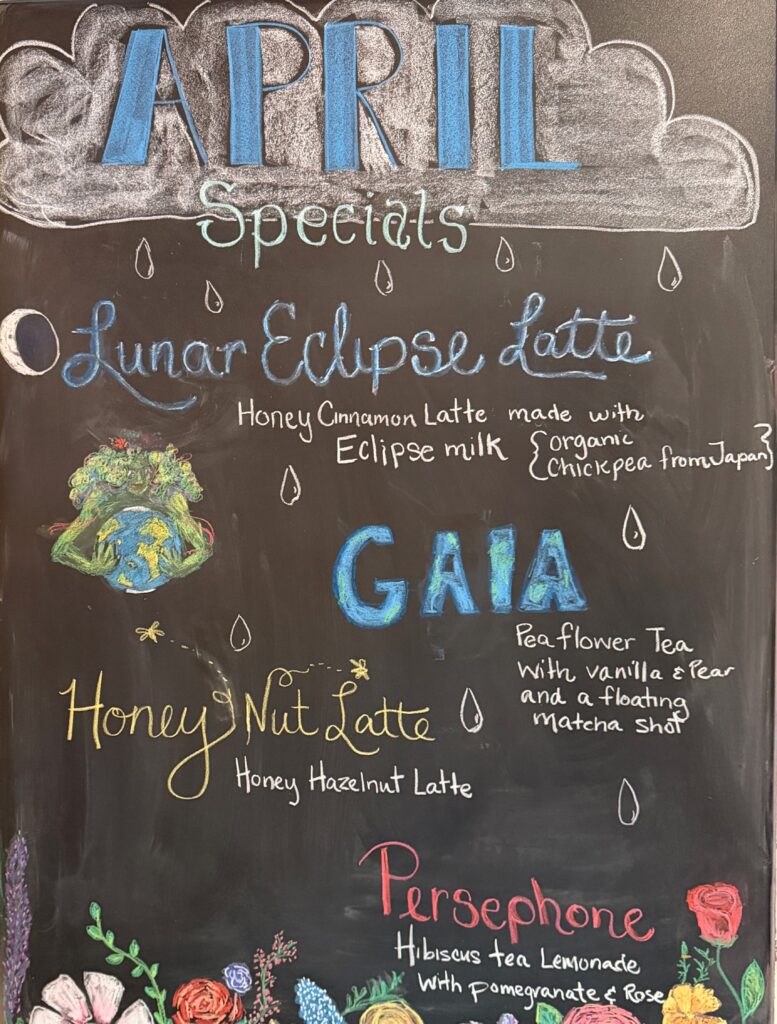 APRIL
Specials
Lunar Eclipse Latte
Honey Cinnamon Latte made with
Eclipse milk {organic
chickpea from Japan}
GAIA
Pea flower Tea
with vanilla & Pear
and a floating
matcha shot
Honey Nut Latte
Honey Hazelnut Latte
Persephone
Hibiscus tea Lemonade
with pomegranate & Rose